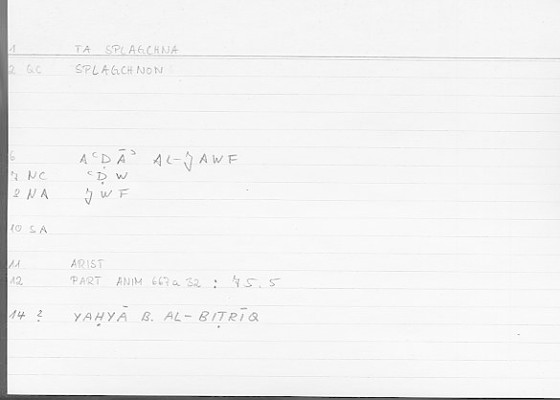 1 TA SPLAGCHNA
2 GC SPLAGCHNON
6 AʿḌĀʾ AL-ǦAWF
7 NC ʿḌW
8 NA ǦWF
10 SA
11 ARIST
12 PART ANIM 667a 32 : 75.5
14 ? YAḤYĀ B. AL-BIṬRĪQ